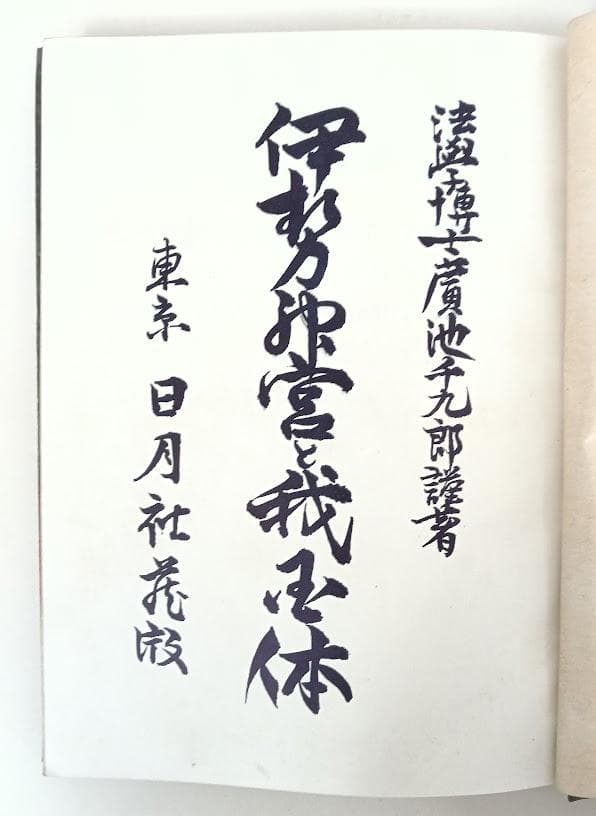 法學博士廣池千九郎謹著
伊勢神宮と我国体
東京 日月社蔵版